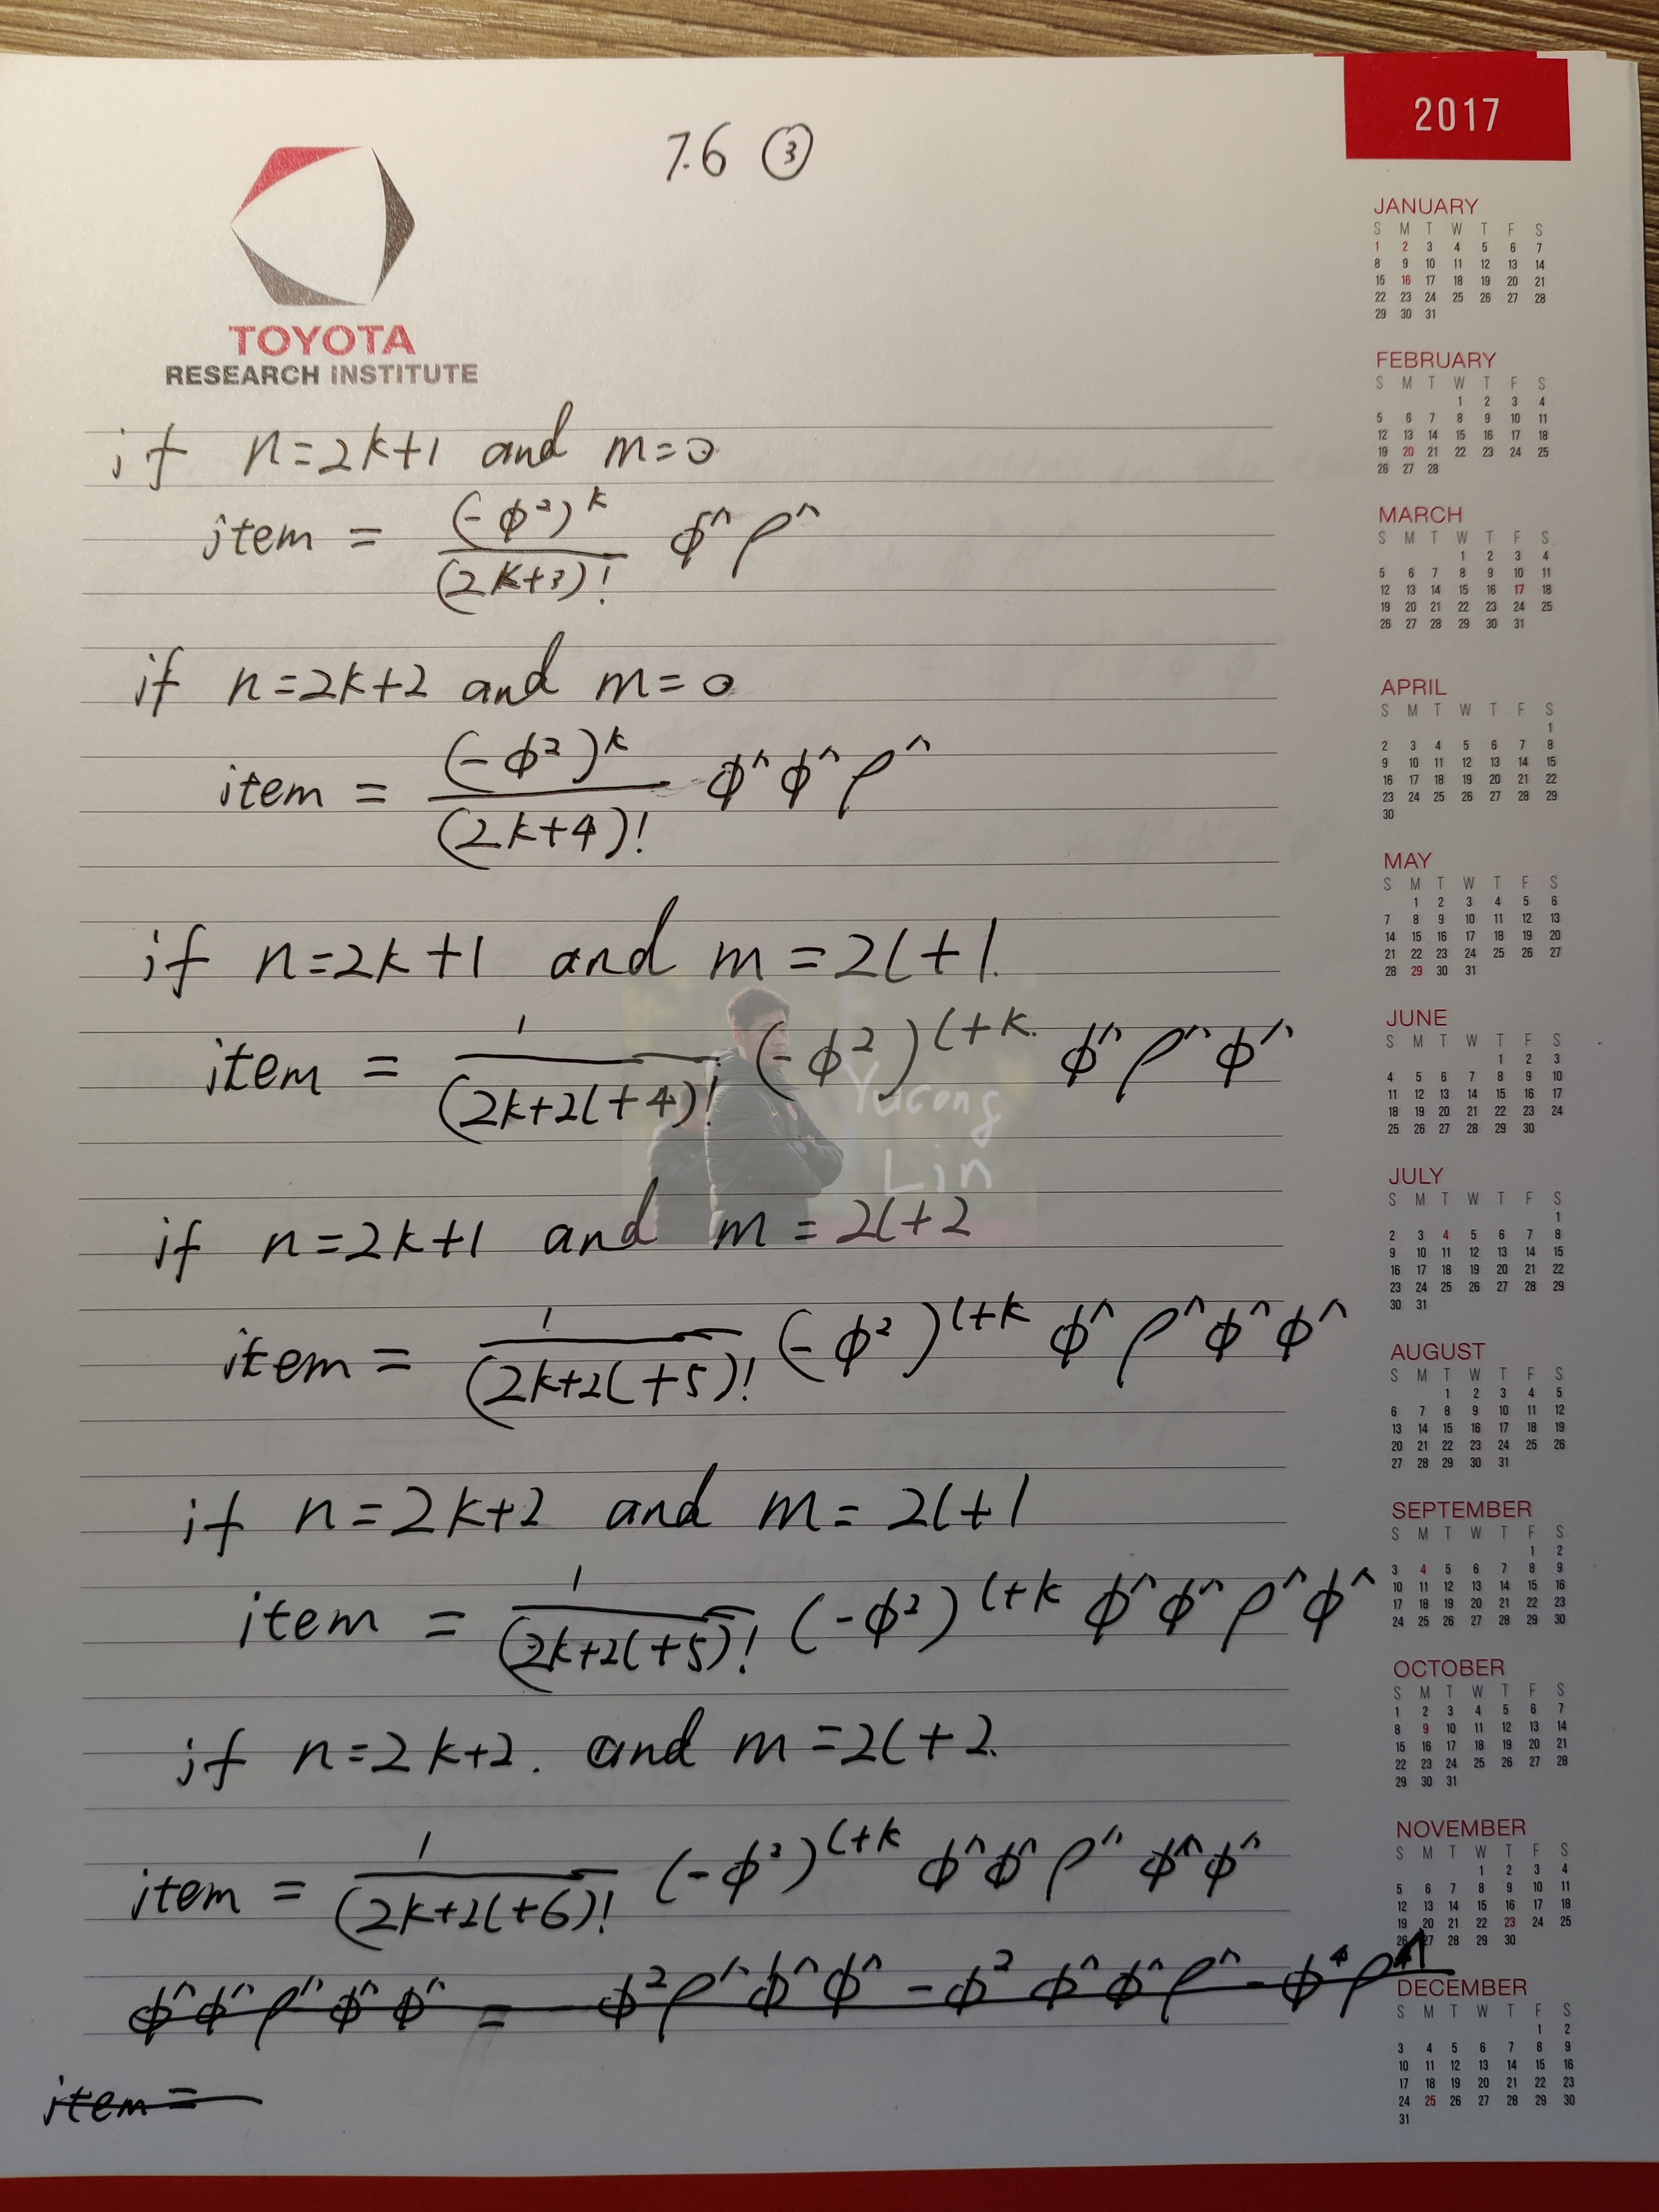 2017
7.6 ③
TOYOTA
RESEARCH INSTITUTE
if n=2k+1 and m=0
item = (-ϕ²)^k / (2k+3)! ϕ^ ρ^
if n=2k+2 and m=0
item = (-ϕ²)^k / (2k+4)! ϕ^ ϕ^ ρ^
if n=2k+1 and m=2l+1.
item = 1 / (2k+2l+4)! (-ϕ²)^l+k. ϕ^ ρ^ ϕ^
Yucong
Lin
if n=2k+1 and m=2l+2
item = 1 / (2k+2l+5)! (-ϕ²)^l+k ϕ^ ρ^ ϕ^ ϕ^
if n=2k+2 and m=2l+1
item = 1 / (2k+2l+5)! (-ϕ²)^l+k ϕ^ ϕ^ ρ^ ϕ^
if n=2k+2. and m=2l+2.
item = 1 / (2k+2l+6)! (-ϕ²)^l+k ϕ^ ϕ^ ρ^ ϕ^ ϕ^
ϕ^ ϕ^ ρ^ ϕ^ ϕ^ = -ϕ² ρ^ ϕ^ ϕ^ - ϕ² ϕ^ ϕ^ ρ^ - ϕ⁴ ρ^
item =
JANUARY
S M T W T F S
1 2 3 4 5 6 7
8 9 10 11 12 13 14
15 16 17 18 19 20 21
22 23 24 25 26 27 28
29 30 31
FEBRUARY
S M T W T F S
1 2 3 4
5 6 7 8 9 10 11
12 13 14 15 16 17 18
19 20 21 22 23 24 25
26 27 28
MARCH
S M T W T F S
1 2 3 4
5 6 7 8 9 10 11
12 13 14 15 16 17 18
19 20 21 22 23 24 25
26 27 28 29 30 31
APRIL
S M T W T F S
1
2 3 4 5 6 7 8
9 10 11 12 13 14 15
16 17 18 19 20 21 22
23 24 25 26 27 28 29
30
MAY
S M T W T F S
1 2 3 4 5 6
7 8 9 10 11 12 13
14 15 16 17 18 19 20
21 22 23 24 25 26 27
28 29 30 31
JUNE
S M T W T F S
1 2 3
4 5 6 7 8 9 10
11 12 13 14 15 16 17
18 19 20 21 22 23 24
25 26 27 28 29 30
JULY
S M T W T F S
1
2 3 4 5 6 7 8
9 10 11 12 13 14 15
16 17 18 19 20 21 22
23 24 25 26 27 28 29
30 31
AUGUST
S M T W T F S
1 2 3 4 5
6 7 8 9 10 11 12
13 14 15 16 17 18 19
20 21 22 23 24 25 26
27 28 29 30 31
SEPTEMBER
S M T W T F S
1 2
3 4 5 6 7 8 9
10 11 12 13 14 15 16
17 18 19 20 21 22 23
24 25 26 27 28 29 30
OCTOBER
S M T W T F S
1 2 3 4 5 6 7
8 9 10 11 12 13 14
15 16 17 18 19 20 21
22 23 24 25 26 27 28
29 30 31
NOVEMBER
S M T W T F S
1 2 3 4
5 6 7 8 9 10 11
12 13 14 15 16 17 18
19 20 21 22 23 24 25
26 27 28 29 30
DECEMBER
S M T W T F S
1 2
3 4 5 6 7 8 9
10 11 12 13 14 15 16
17 18 19 20 21 22 23
24 25 26 27 28 29 30
31